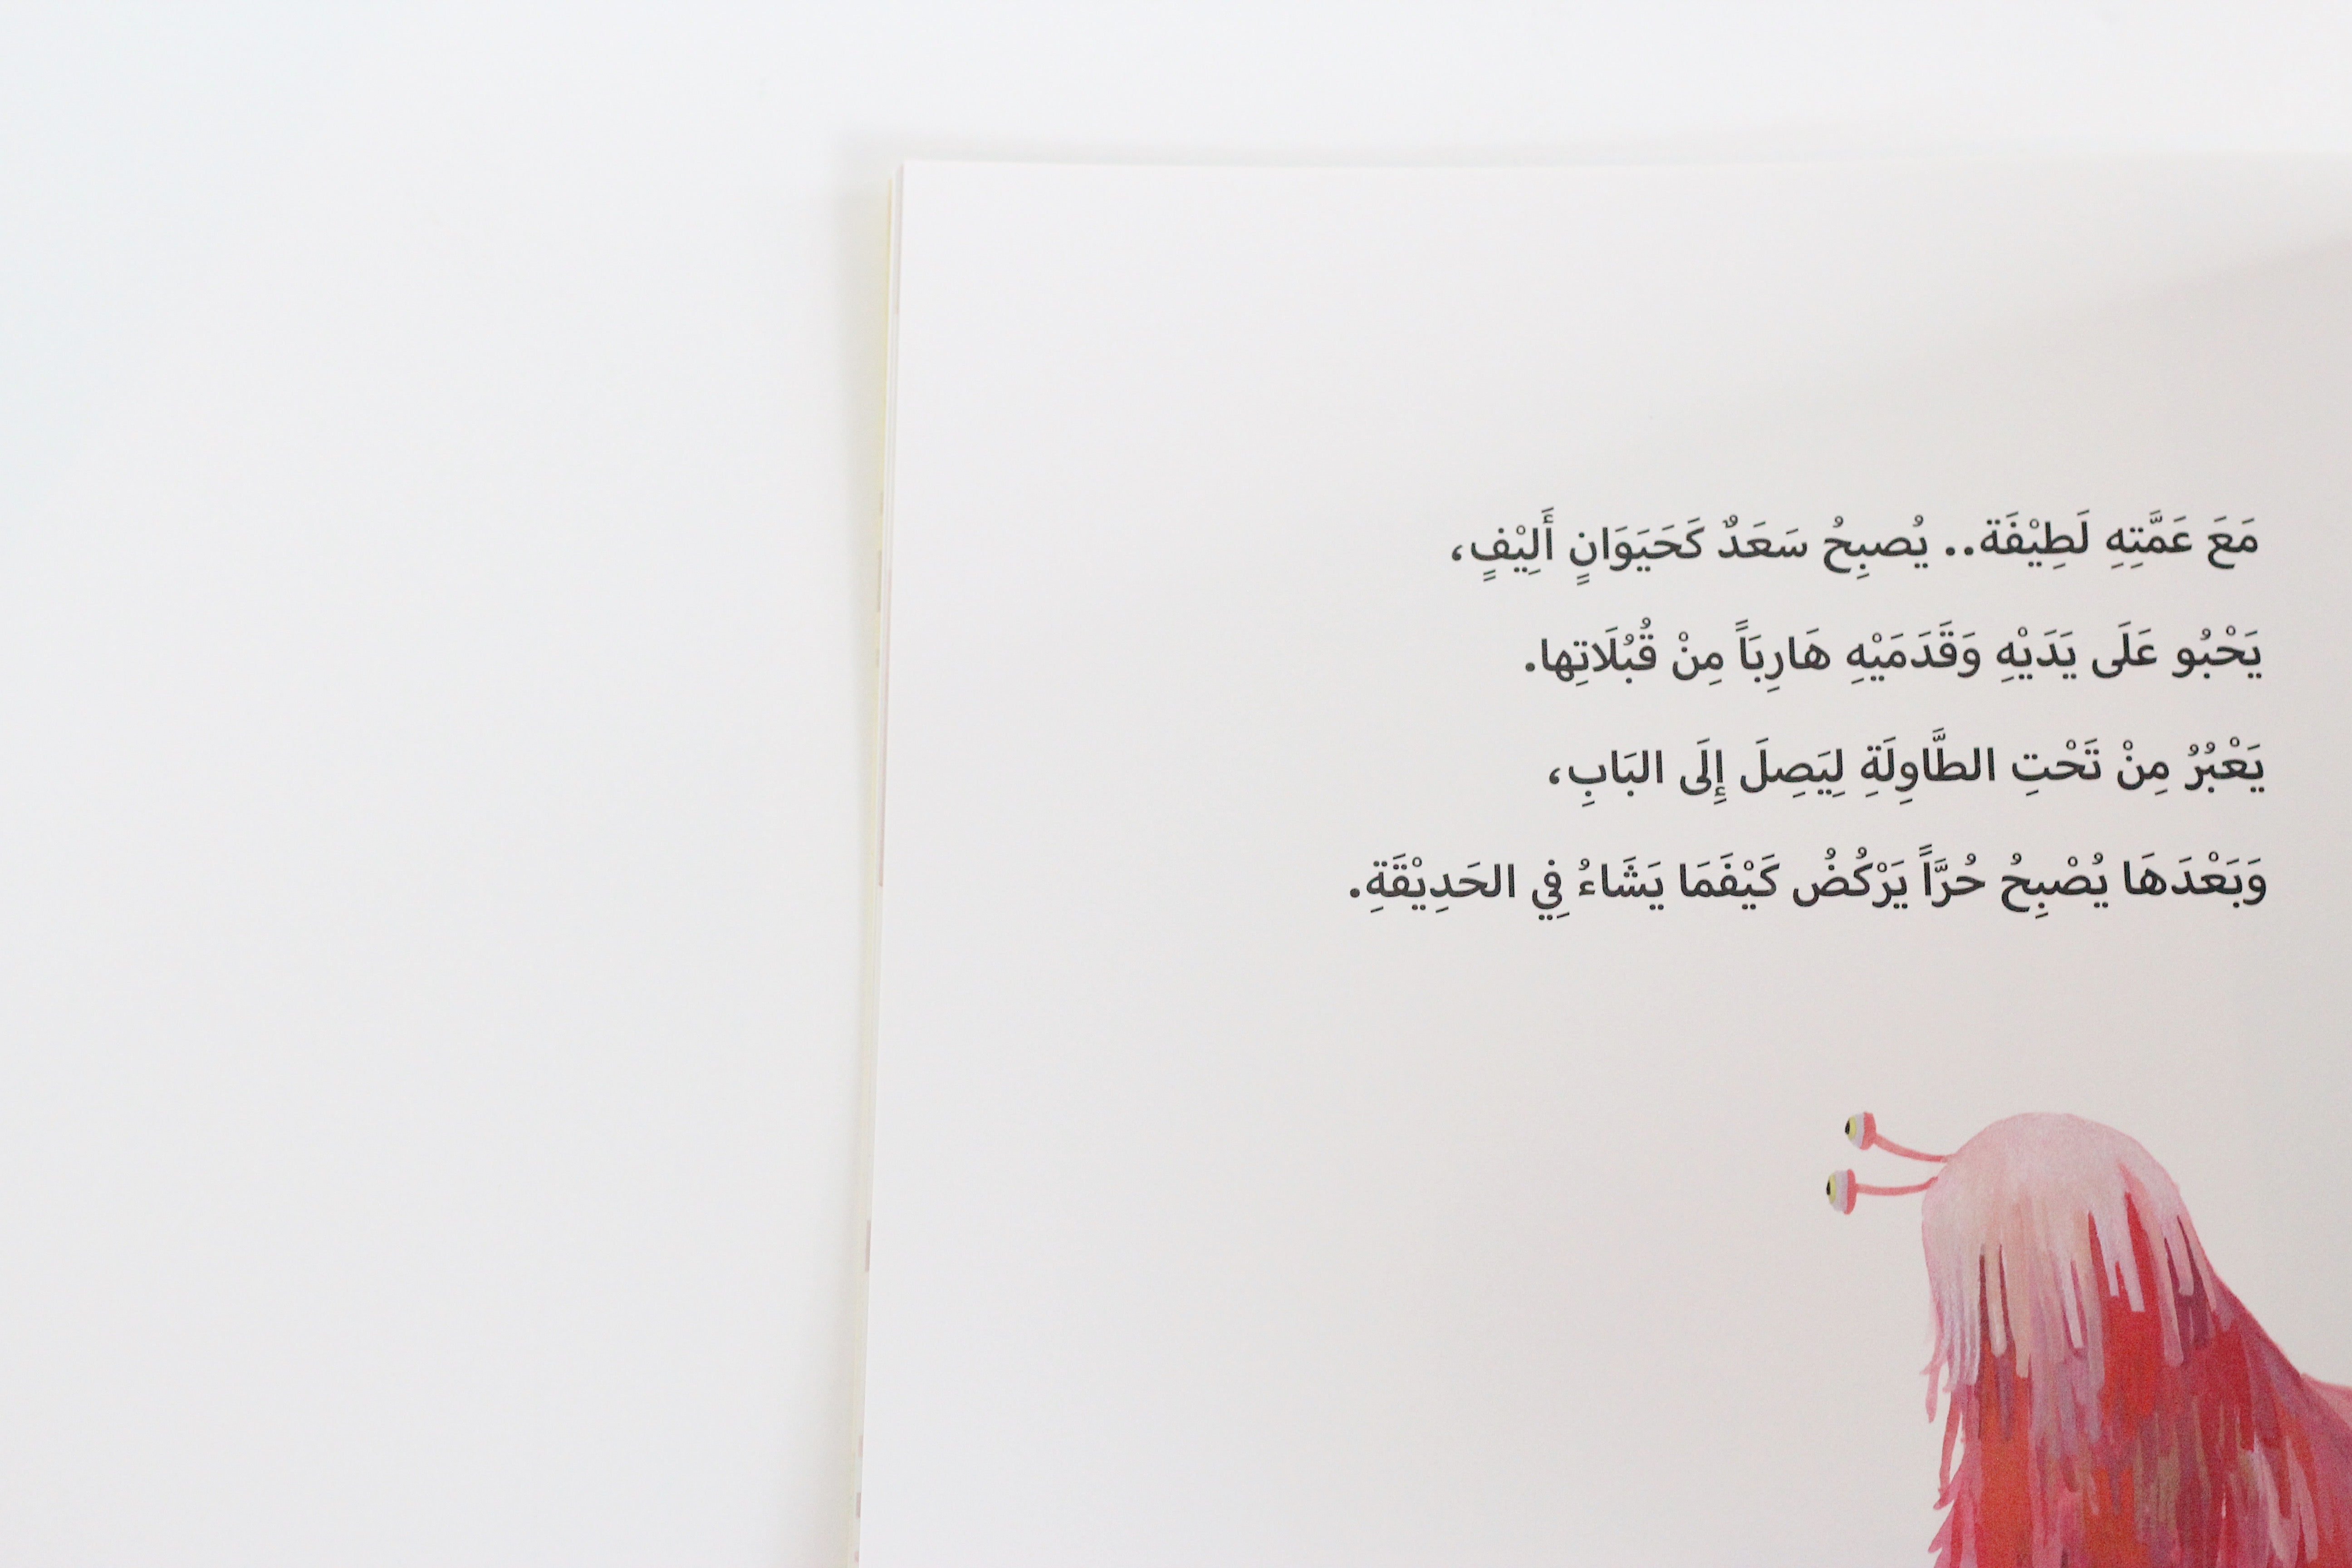 مَعَ عَمَّتِهِ لَطِيْفَة.. يُصبِحُ سَعَدٌ كَحَيَوَانٍ أَلِيْفٍ،
يَحْبُو عَلَى يَدَيْهِ وَقَدَمَيْهِ هَارِبَاً مِنْ قُبُلَاتِها.
يَعْبُرُ مِنْ تَحْتِ الطَّاوِلَةِ لِيَصِلَ إِلَى البَابِ،
وَبَعْدَهَا يُصْبِحُ حُرَّاً يَرْكُضُ كَيْفَمَا يَشَاءُ فِي الحَدِيْقَةِ.